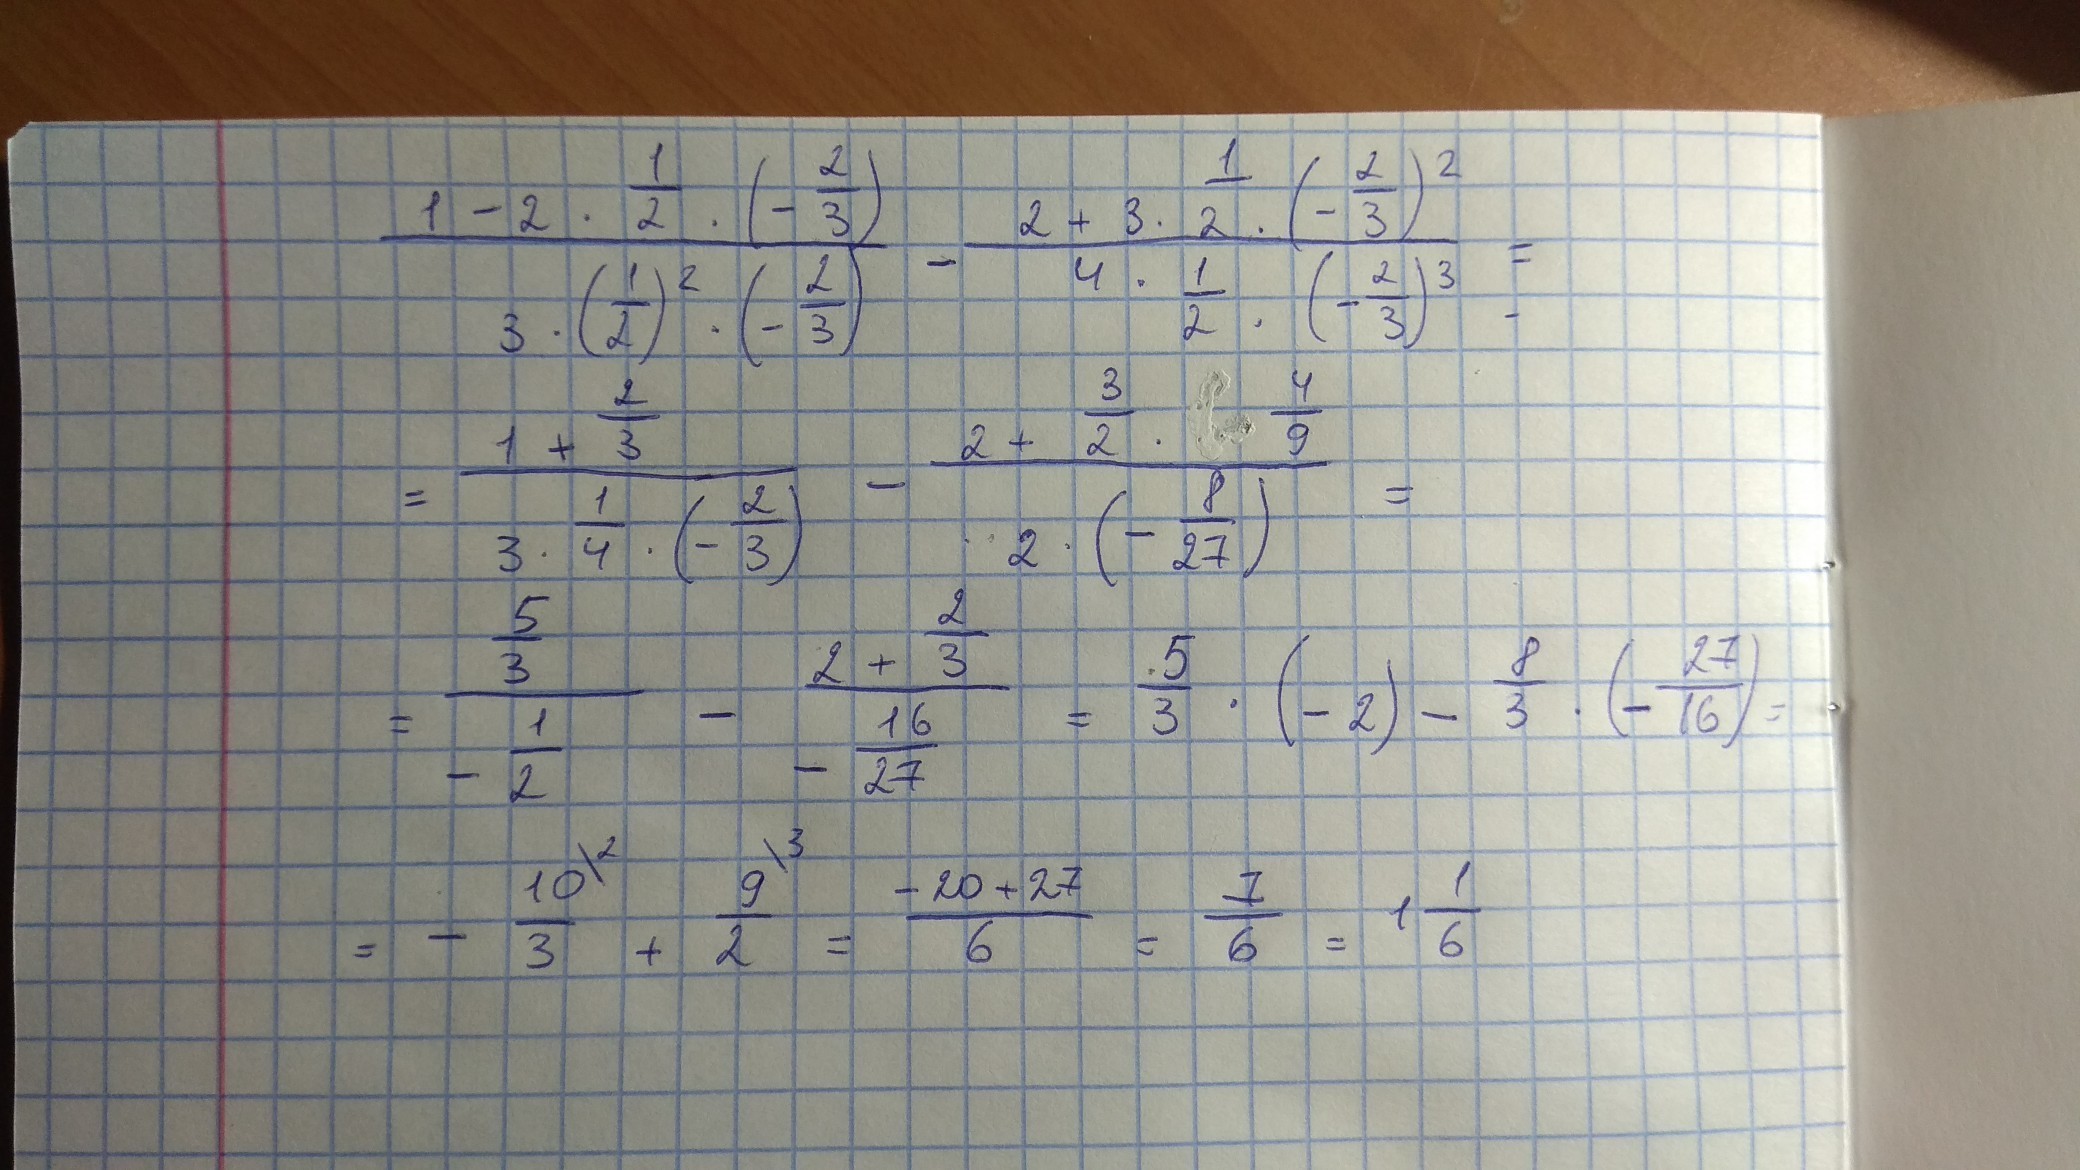 (1 - 2 · 1/2 · (-2/3)) / (3 · (1/2)² · (-2/3)) - (2 + 3 · 1/2 · (-2/3)²) / (4 · 1/2 · (-2/3)³) =
= (1 + 2/3) / (3 · 1/4 · (-2/3)) - (2 + 3/2 · 4/9) / (2 · (-8/27)) =
= (5/3) / (-1/2) - (2 + 2/3) / (-16/27) = 5/3 · (-2) - 8/3 · (-27/16) =
= - 10\²/3 + 9\³/2 = (-20+27)/6 = 7/6 = 1 1/6